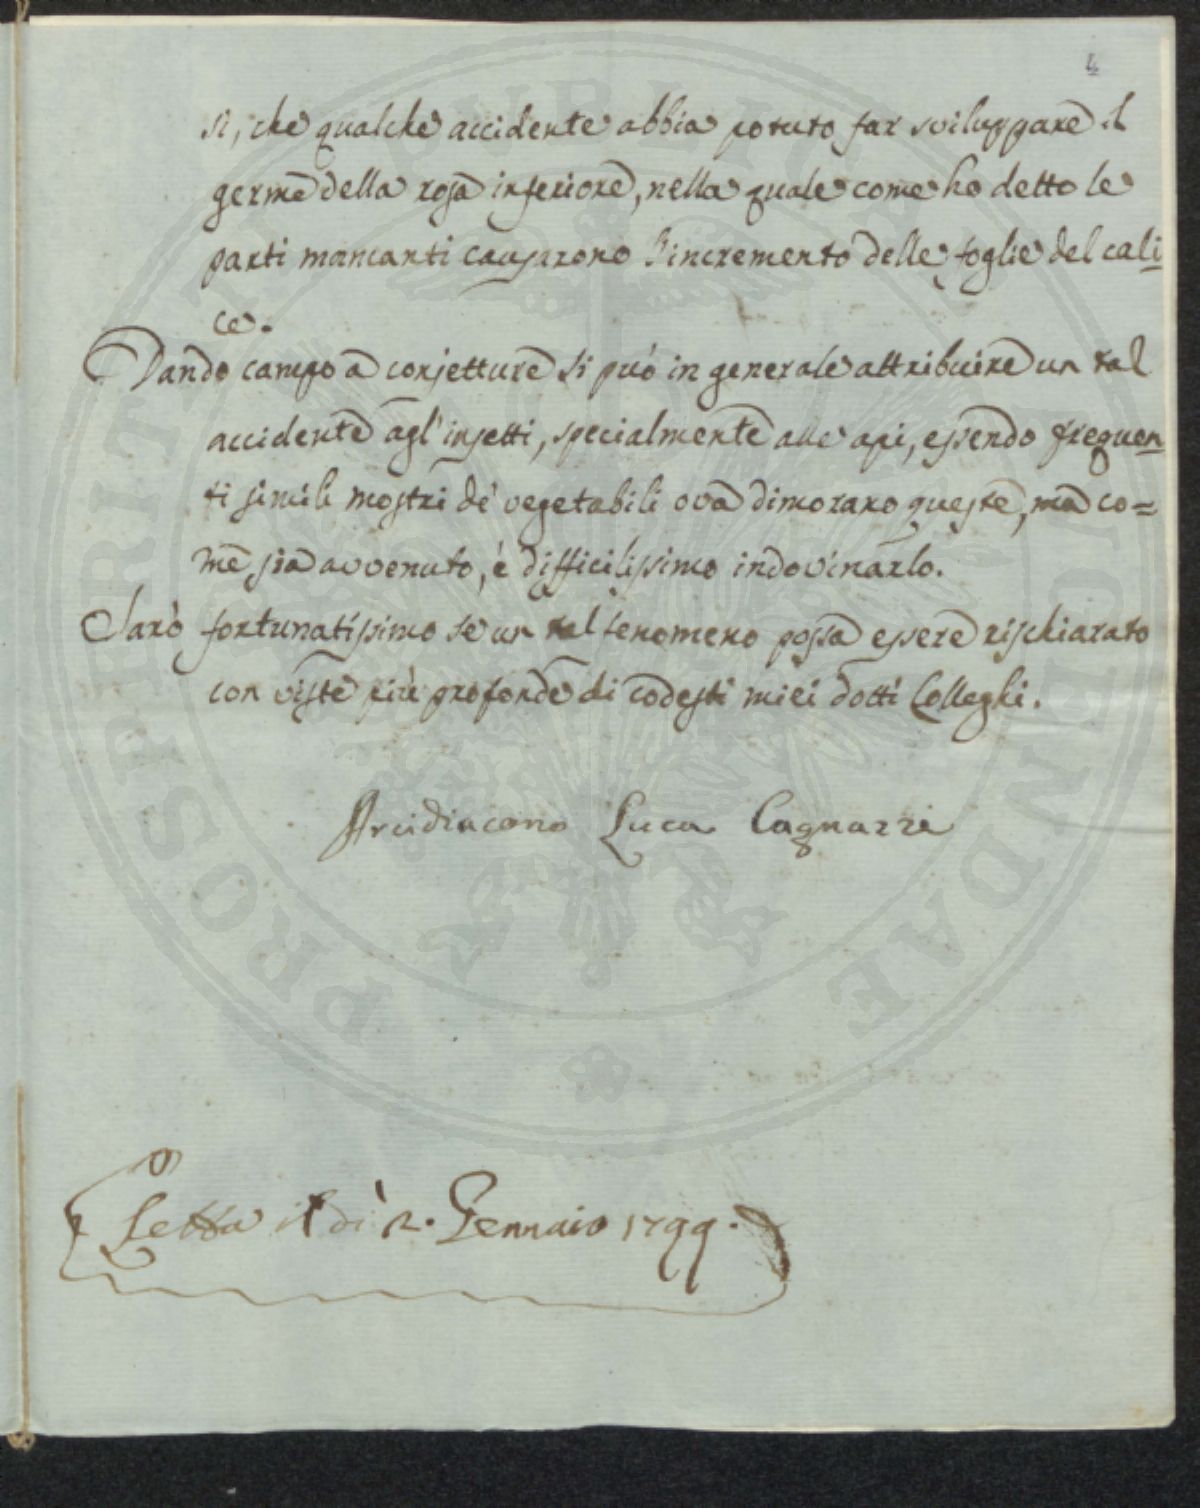 4
si, che qualche accidente abbia potuto far sviluppare il
germe della rosa inferiore, nella quale come ho detto le
parti mancanti causarono l'incremento delle foglie del cali-
ce.
Dando campo a conjetture si può in generale attribuire un tal
accidente agl'insetti, specialmente alle api, essendo frequen-
ti simili mostri de' vegetabili ova dimorano queste, ma co=
me sia avvenuto, è difficilissimo indovinarlo.
Sarò fortunatissimo se un tal fenomeno possa essere rischiarato
con viste più profonde di codesti miei dotti Colleghi.
Arcidiacono Luca Cagnazzi
Letta il dì 2. Gennaio 1799.
PUBLICAE
PROSPERITATI AUGENDAE